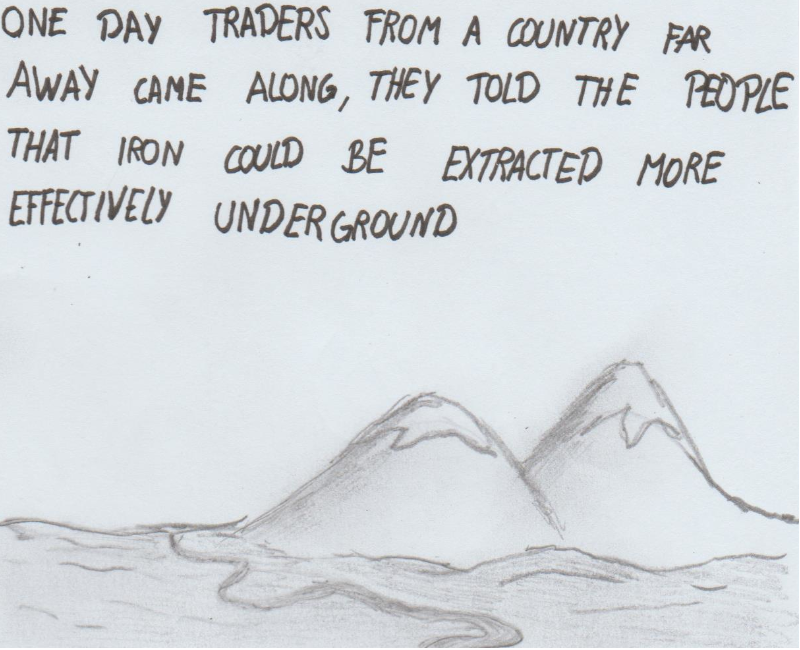 ONE DAY TRADERS FROM A COUNTRY FAR
AWAY CAME ALONG, THEY TOLD THE PEOPLE
THAT IRON COULD BE EXTRACTED MORE
EFFECTIVELY UNDERGROUND